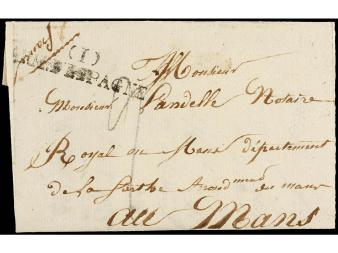 (I)
ARM. D'ESPAGNE
A Monsieur
Monsieur Landelle Notaire
Royal au Mans département
de la Sarthe Arond.ment du mans
au Mans